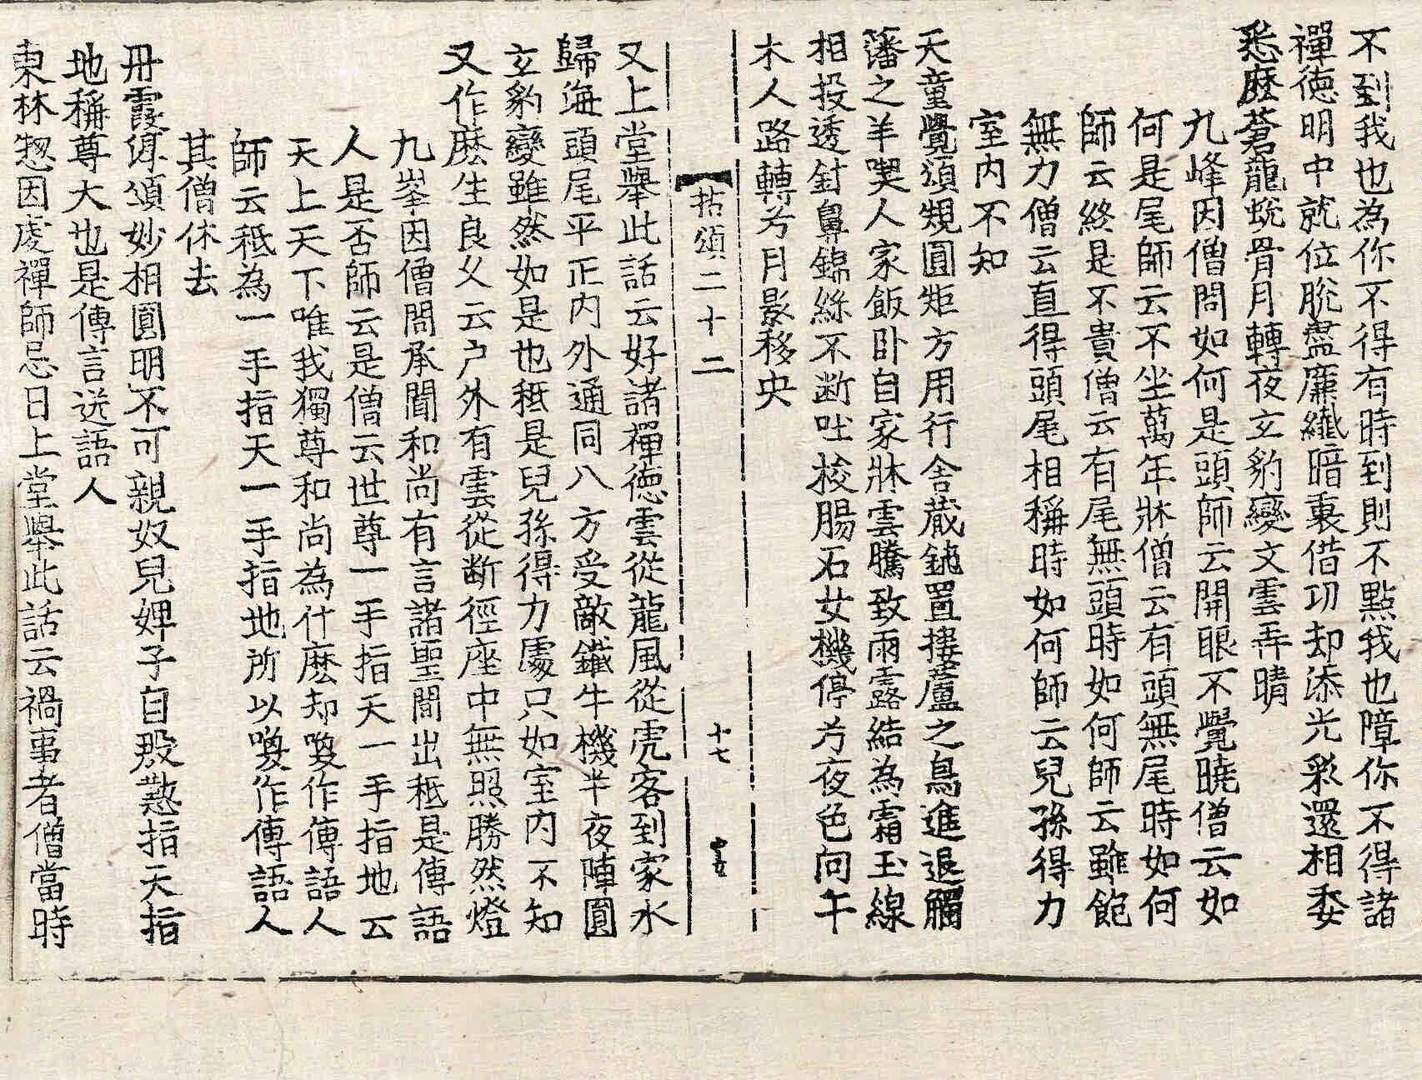 不到我也為你不得有時到則不點我也障你不得諸
禪德明中就位脫盡廉纖暗裏借功却添光彩還相委
悉麽蒼龍蛻骨月轉夜玄豹變文雲弄晴
九峰因僧問如何是頭師云開眼不覺曉僧云如
何是尾師云不坐萬年牀僧云有頭無尾時如何
師云終是不貴僧云有尾無頭時如何師云雖飽
無力僧云直得頭尾相稱時如何師云兒孫得力
室內不知
天童覺頌規圓矩方用行舍蔵鈍置捿蘆之鳥進退觸
藩之羊喫人家飯卧自家牀雲騰致雨露結為霜玉線
相投透針鼻錦絲不断吐梭腸石女機停兮夜色向午
木人路轉兮月影移央
拈頌二十二
十七
又上堂舉此話云好諸禪德雲從龍風從虎客到家水
歸海頭尾平正內外通同八方受敵鐵牛機半夜陣圓
玄豹變雖然如是也秪是兒孫得力處只如室內不知
又作麽生良久云户外有雲從断徑座中無照勝然燈
九峯因僧問承聞和尚有言諸聖間出秪是傳語
人是否師云是僧云世尊一手指天一手指地云
天上天下唯我獨尊和尚為什麽却喚作傳語人
師云秪為一手指天一手指地所以喚作傳語人
其僧休去
丹霞淳頌妙相圓明不可親奴兒婢子自殷懃指天指
地稱尊大也是傳言送語人
東林惣因虔禪師忌日上堂舉此話云禍事者僧當時